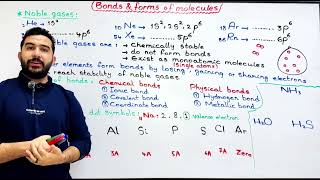 Bonds & forms of molecules
* Noble gases:
₂He → 1S²
₁₀Ne → 1S², 2S², 2P⁶
₁₈Ar → ........ 3P⁶
........ 4P⁶
₅₄Xe → ........ 5P⁶
Rn → ........ 6P⁶
gases are: → chemically stable
→ do not form bonds
→ Exist as monoatomic molecules
(single atoms)
elements form bonds by losing, gaining or sharing electrons
reach stability of noble gases
of bonds:
Chemical bonds
① Ionic bond
② Covalent bond
③ Coordinate bond
Physical bonds
① Hydrogen bond
② Metallic bond
NH₃
H₂O
H₂S
dot symbols:
Na: 2, 8, 1
valence electron
Al Si P S Cl Ar
3A 4A 5A 6A 7A Zero